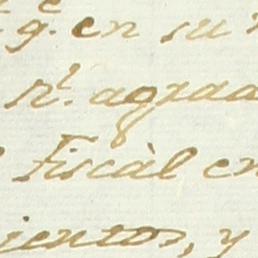 q.e en su
n.l agrad
Fiscàl en
ientos, y